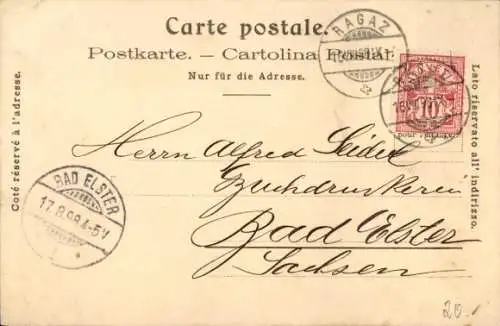 Carte postale.
Postkarte. – Cartolina Postal
Nur für die Adresse.
Coté réservé à l'adresse.
Lato riservato all' indirizzo.
RAGAZ
10
Herrn Alfred Seidel
Buchdruckerei
Bad Elster
Sachsen
BAD ELSTER
17.8.99.4-5V
20.-